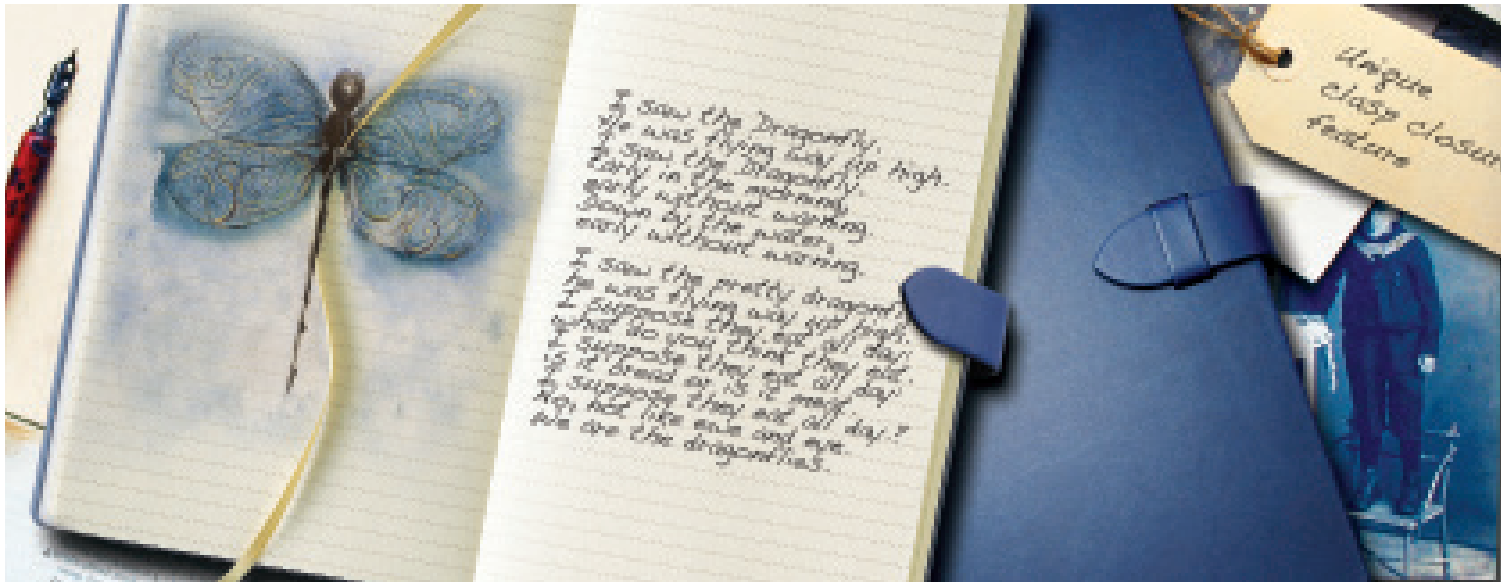 I saw the Dragonfly.
He was flying way up high.
I saw the Dragonfly.
Early in the morning,
early without warning.
Down by the water,
early without warning.
I saw the pretty dragonfly
he was flying way high.
I suppose they eat all day.
What do you think they eat.
I suppose they eat all day
Is it bread or is it
I suppose they eat all day?
No, not like ewe and eye.
we are the dragonflies.
Unique
clasp closur
feature